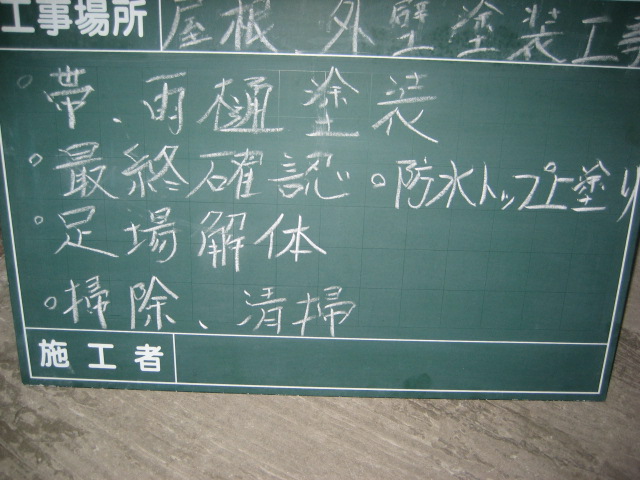 工事場所 屋根、外壁塗装工事
○帯、雨樋塗装
○最終確認 ○防水トップ上塗り
○足場解体
○掃除、清掃
施工者